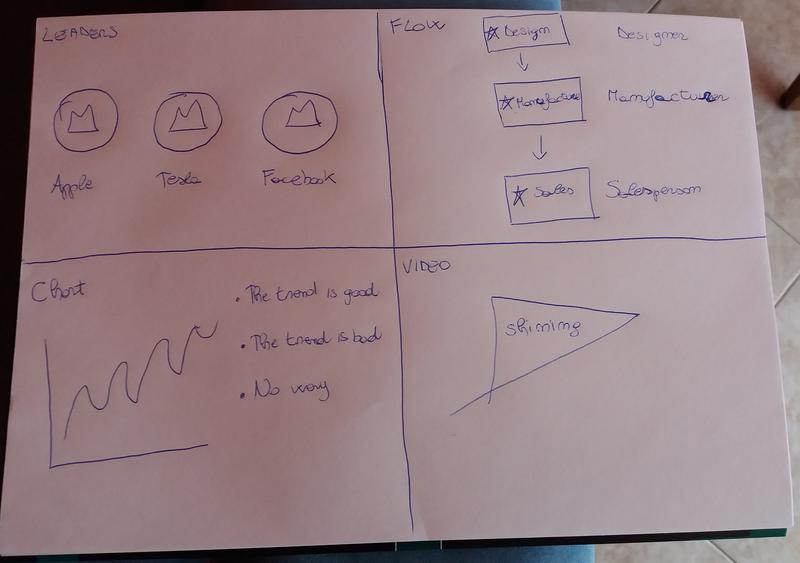 LEADERS
Apple
Tesla
Facebook
FLOW
Design
Designer
Manufacture
Manufacturer
Sales
Salesperson
Chart
• The trend is good
• The trend is bad
• No way
VIDEO
Shining